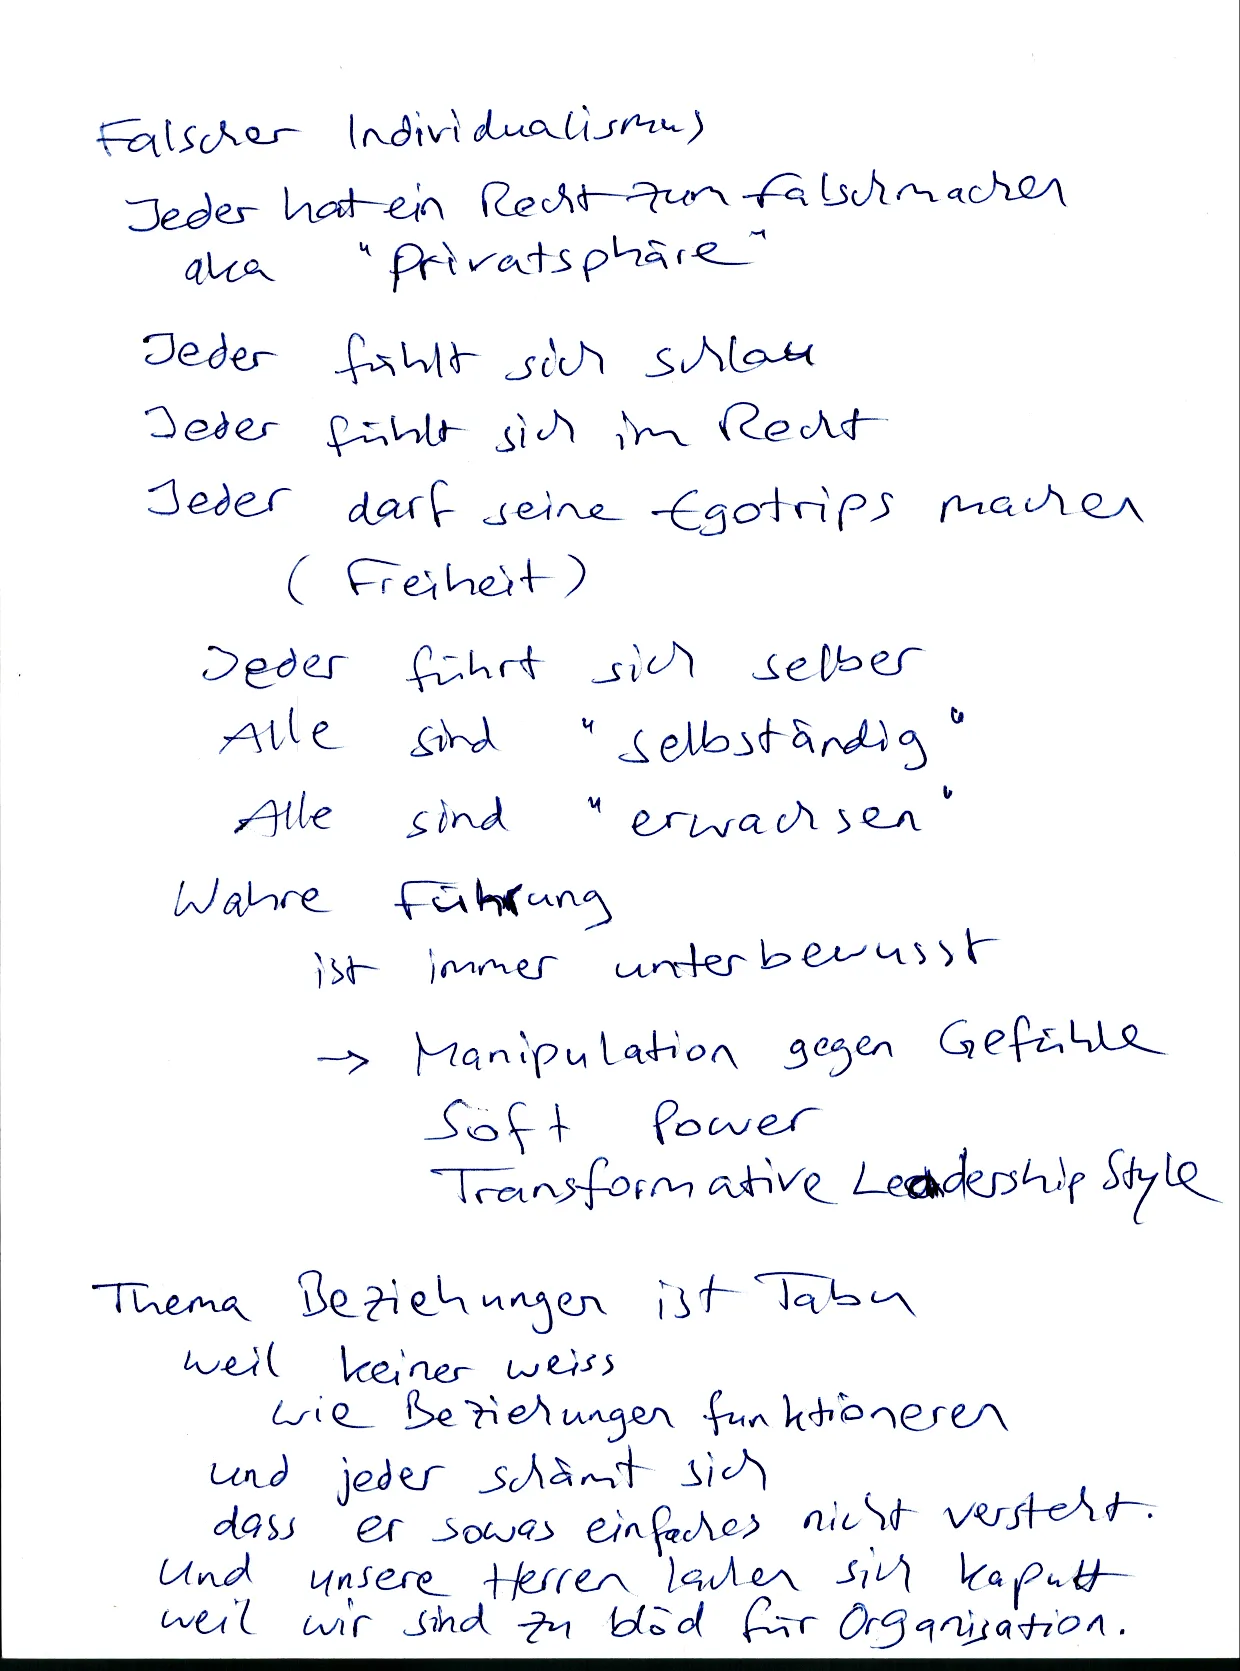 Falscher Individualismus
Jeder hat ein Recht zum falschmachen
aka "Privatsphäre"
Jeder fühlt sich schlau
Jeder fühlt sich im Recht
Jeder darf seine Egotrips machen
( Freiheit )
Jeder führt sich selber
Alle sind "selbständig"
Alle sind "erwachsen"
Wahre Führung
ist immer unterbewusst
→ Manipulation gegen Gefühle
Soft Power
Transformative Leadership Style
Thema Beziehungen ist Tabu
weil keiner weiss
wie Beziehungen funktionieren
und jeder schämt sich
dass er sowas einfaches nicht versteht.
Und unsere Herren lachen sich kaputt
weil wir sind zu blöd für Organisation.